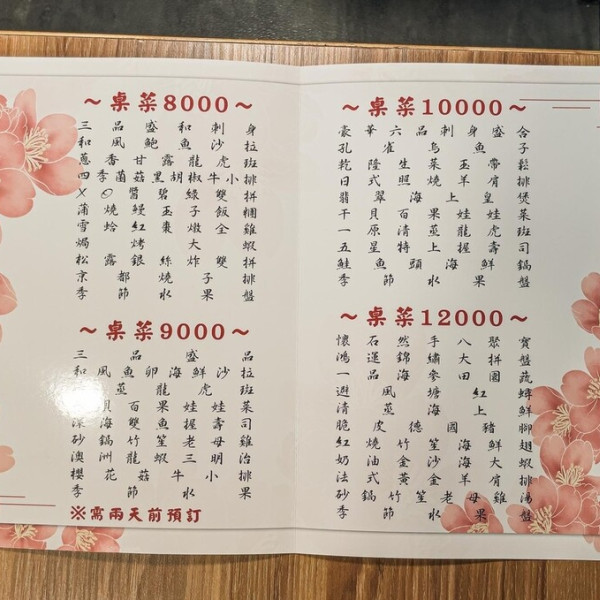 ~桌菜8000~
三品盛和刺身
和風鮑魚沙拉
蔥香甘露龍虎斑
四季菌菇黑胡椒牛小排
XO醬碧綠雙拼
蒲燒鰻玉子飯糰
雪蛤紅棗燉全雞
焗烤大蝦
松露銀絲炸雙拼
京都燒子排
季節水果盤
~桌菜9000~
三品盛
和風魚卵海鮮沙拉
蒸龍虎斑
貝百果娃娃菜
深海雙魚握壽司
砂鍋竹笙老母雞
澳洲龍三明治
櫻花菇牛小排
季節水果
※需兩天前預訂
~桌菜10000~
豪華六品刺身盛合
孔雀烏魚子
乾隆生菜玉帶鬆
日式照燒羊肩排
翡翠海上皇煲
干貝百果娃娃菜
一原清蒸龍虎斑
五星特上握壽司
鮭魚頭海鮮鍋
季節水果盤
~桌菜12000~
懷石然手八聚寶
鴻運錦繡大拼盤
一品海參田園蔬
避風塘紅蟳
清蒸海上鮮
脆皮德國豬腳
紅燒竹笙海鮮翅
奶油黃金沙海大蝦
法式金羊肩排
砂鍋竹笙老母雞湯
季節水果盤